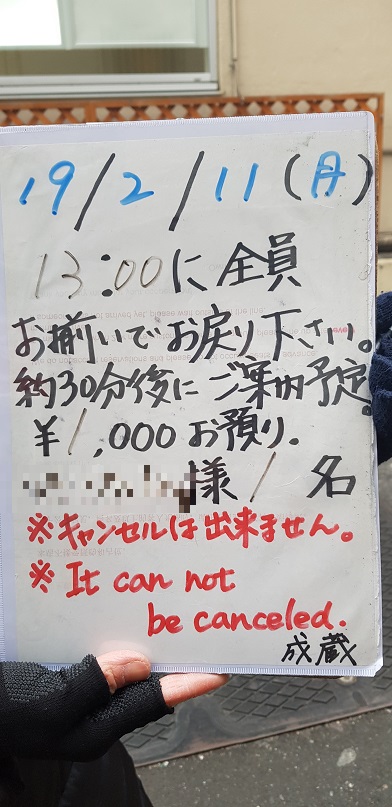 19/2/11(月)
13:00に全員
お揃いでお戻り下さい。
約30分後にご案内予定。
¥1,000お預り.
様 1 名
※キャンセルは出来ません。
※ It can not
be canceled.
成蔵